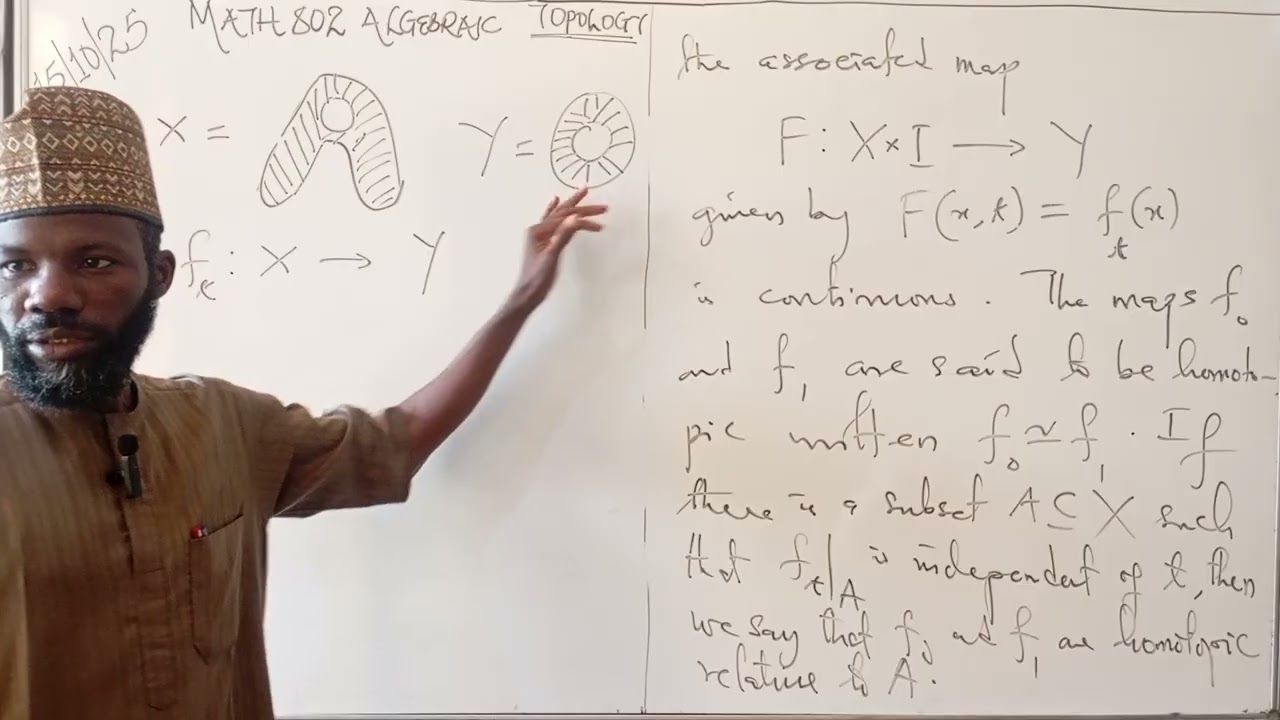 MATH 802 ALGEBRAIC TOPOLOGY
15/10/25
X =
Y =
f_t : X → Y
the associated map
F : X × I → Y
given by F(x, t) = f_t(x)
is continuous. The maps f_0
and f_1 are said to be homoto-
pic written f_0 ≃ f_1. If
there is a subset A ⊆ X such
that f_t|_A is independent of t, then
we say that f_0 and f_1 are homotopic
relative to A.